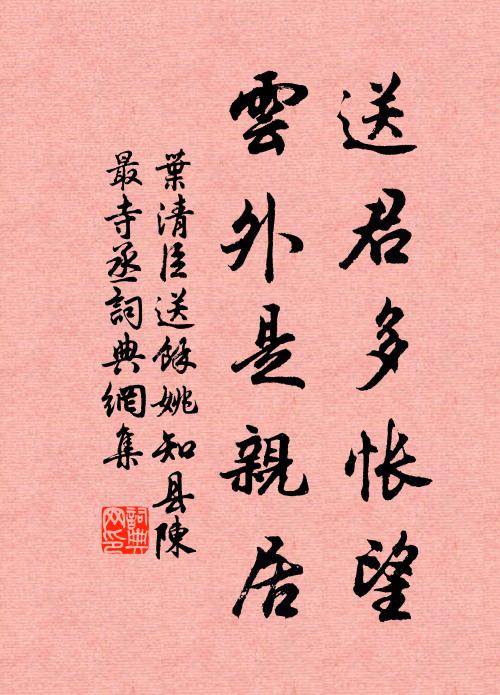 送君多悵望
雲外是親居
葉清臣送餘姚知县陳
最寺丞詞典網集
詞典网印